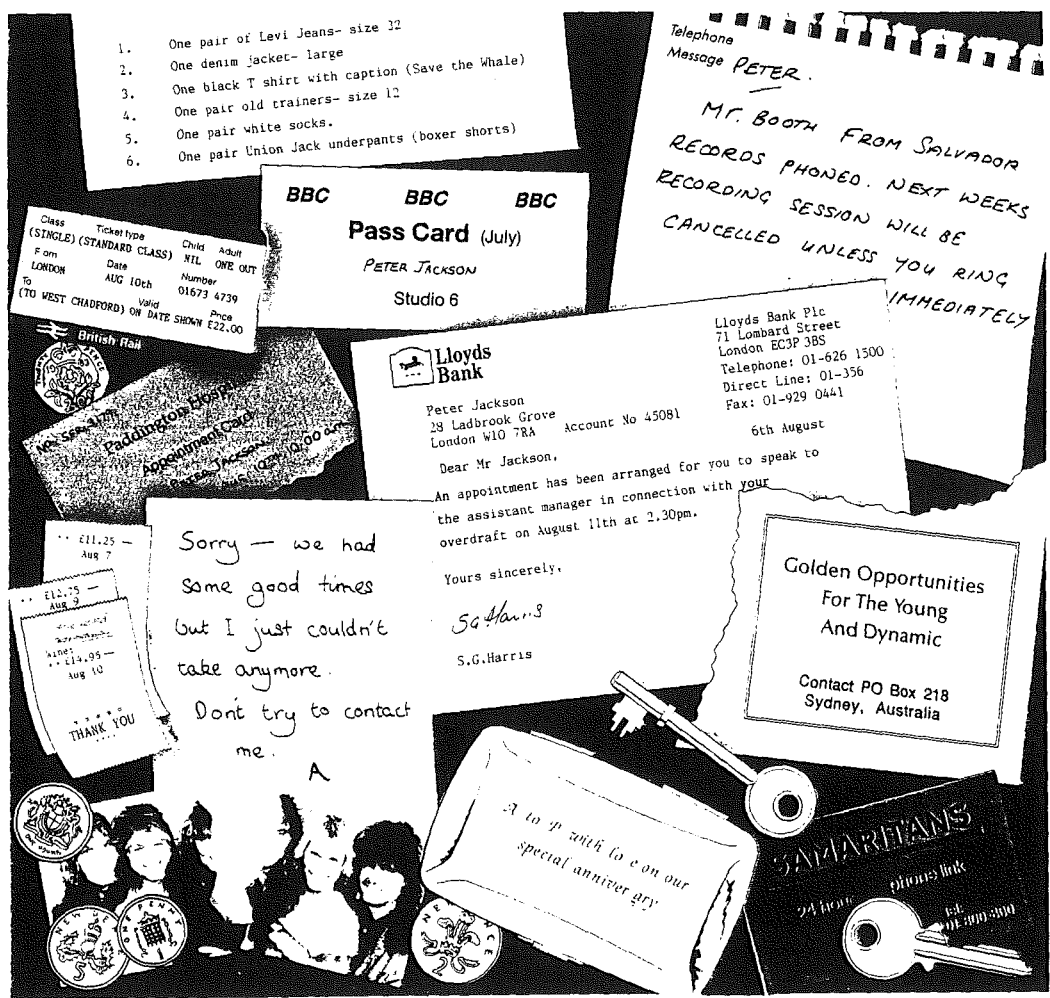 1. One pair of Levi Jeans- size 32
2. One denim jacket- large
3. One black T shirt with caption (Save the Whale)
4. One pair old trainers- size 12
5. One pair white socks.
6. One pair Union Jack underpants (boxer shorts)
Telephone
Message PETER.
MR. BOOTH FROM SALVADOR
RECORDS PHONED. NEXT WEEKS
RECORDING SESSION WILL BE
CANCELLED UNLESS YOU RING
IMMEDIATELY
BBC BBC BBC
Pass Card (July)
PETER JACKSON
Studio 6
Class Ticket type Child Adult
(SINGLE) (STANDARD CLASS) NIL ONE OUT
From Date Number
LONDON AUG 10th 01673 4739
To Valid Price
(TO WEST CHADFORD) ON DATE SHOWN £22.00
British Rail
Paddington Hospi
Appointment Card
PETER JACKSON
10:00 am
Lloyds
Bank
Lloyds Bank Plc
71 Lombard Street
London EC3P 3BS
Telephone: 01-626 1500
Direct Line: 01-356
Fax: 01-929 0441
Peter Jackson
28 Ladbrook Grove
London W10 7RA Account No 45081
6th August
Dear Mr Jackson,
An appointment has been arranged for you to speak to
the assistant manager in connection with your
overdraft on August 11th at 2.30pm.
Yours sincerely,
S G Harris
S.G.Harris
£11.25 —
Aug 7
£12.75 —
Aug 9
Wine:
£14.95 —
Aug 10
THANK YOU
Sorry — we had
some good times
but I just couldn't
take anymore.
Dont try to contact
me.
A
Golden Opportunities
For The Young
And Dynamic
Contact PO Box 218
Sydney, Australia
A to P with lo e on our
special anniver ary
SAMARITANS
24 hour phone link
tel
NEW PENCE
5
ONE PENNY